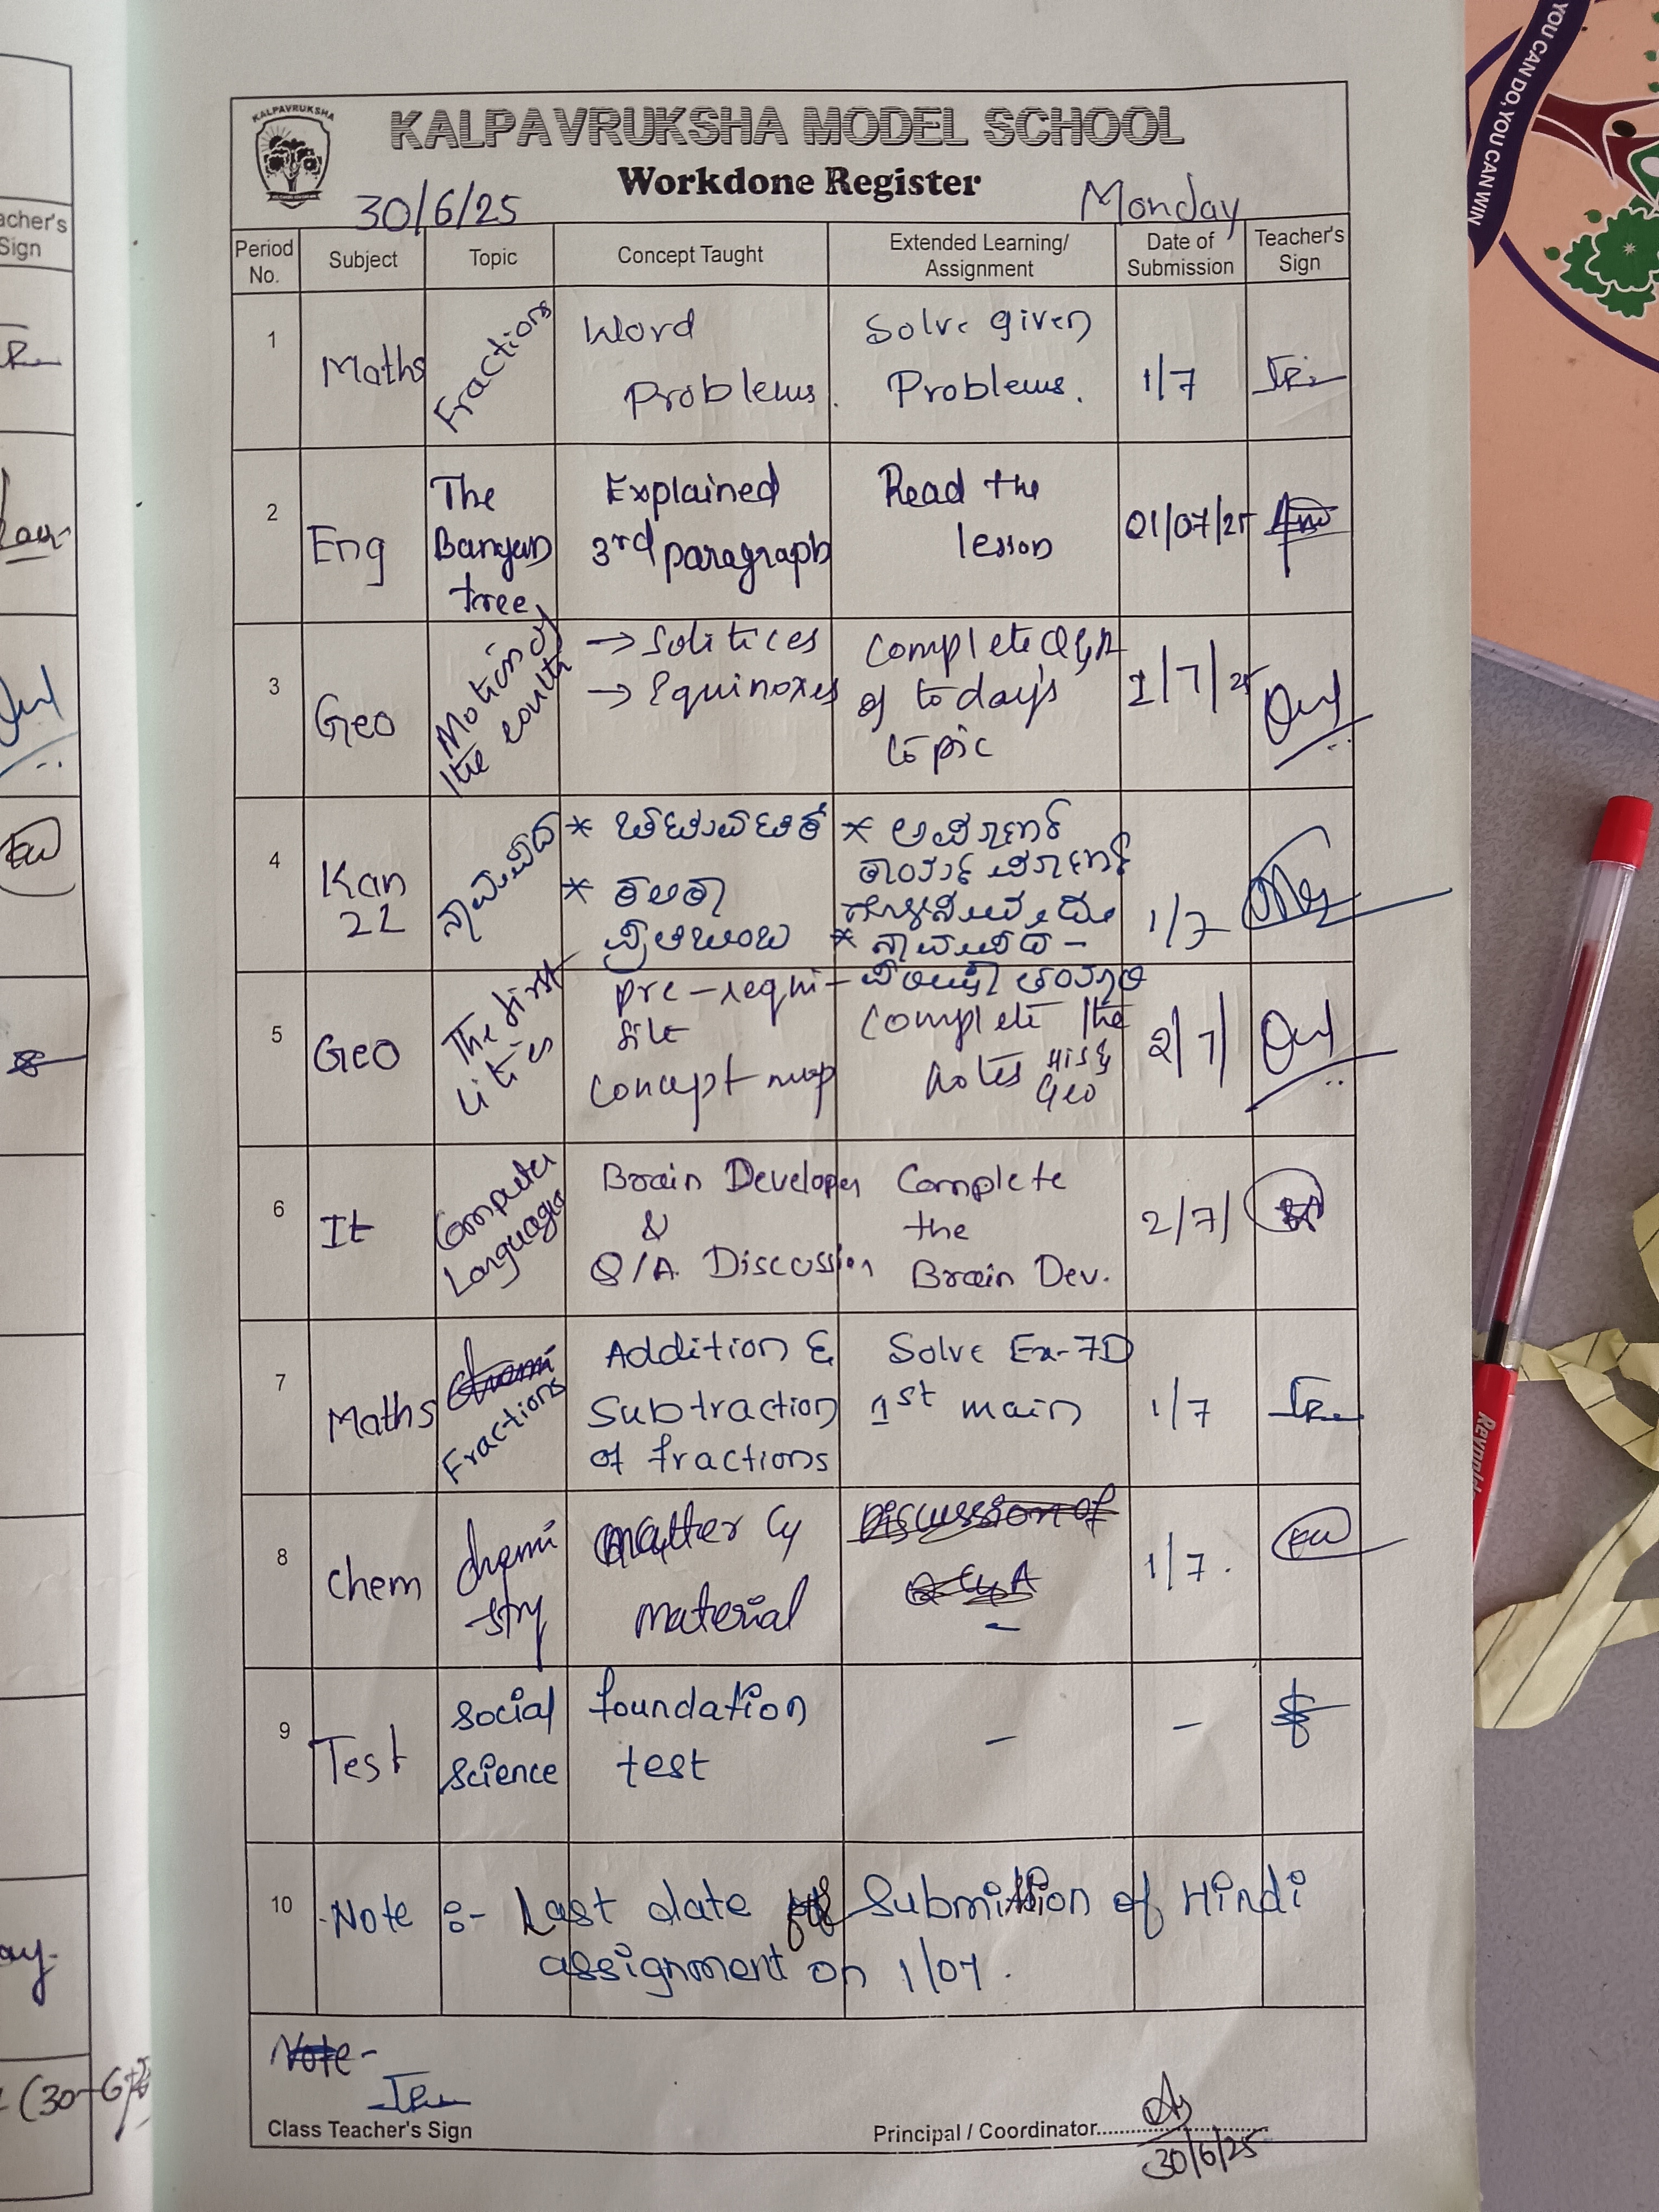 KALPAVRUKSHA
KALPAVRUKSHA MODEL SCHOOL
Workdone Register
30/6/25
Monday
Period No.
Subject
Topic
Concept Taught
Extended Learning/ Assignment
Date of Submission
Teacher's Sign
1
Maths
Fractions
Word
Problems.
Solve given
Problems.
1/7
2
Eng
The
Banyan
tree
Explained
3rd paragraph
Read the
lesson
01/07/25
3
Geo
Motion of
the earth
→ Solitices
→ Equinoxes
Complete Q&A
of today's
topic
1/7/25
4
Kan
2L
1/7
5
Geo
The first
cities
Pre-requi-
site
Concept map
Complete the
notes His &
Geo
2/7/
6
It
Computer
Languages
Brain Developer
&
Q/A. Discussion
Complete
the
Brain Dev.
2/7/
7
Maths
Fractions
Addition &
Subtraction
of fractions
Solve Ex-7D
1st main
1/7
8
Chem
chemi
stry
Matter &
Material
Discussion of
Q & A
-
1/7.
9
Test
Social
Science
foundation
test
-
-
10
Note :- Last date of Submission of Hindi
assignment on 1/07.
Note-
Class Teacher's Sign
Principal / Coordinator
30/6/25
acher's
Sign
YOU CAN DO, YOU CAN WIN
Reynolds